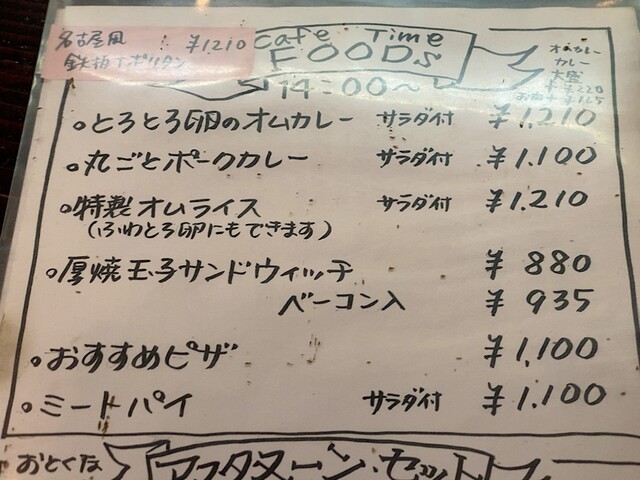 名古屋風 ¥1210
鉄板ナポリタン
Cafe Time
FOODs
14:00～
オムカレー
カレー
大盛
+¥220
・とろとろ卵のオムカレー サラダ付 ¥1,210
・丸ごとポークカレー サラダ付 ¥1,100
・特製オムライス サラダ付 ¥1,210
(ふわとろ卵にもできます)
・厚焼玉子サンドウィッチ ¥880
ベーコン入 ¥935
・おすすめピザ ¥1,100
・ミートパイ サラダ付 ¥1,100
おとくな アフタヌーン・セット